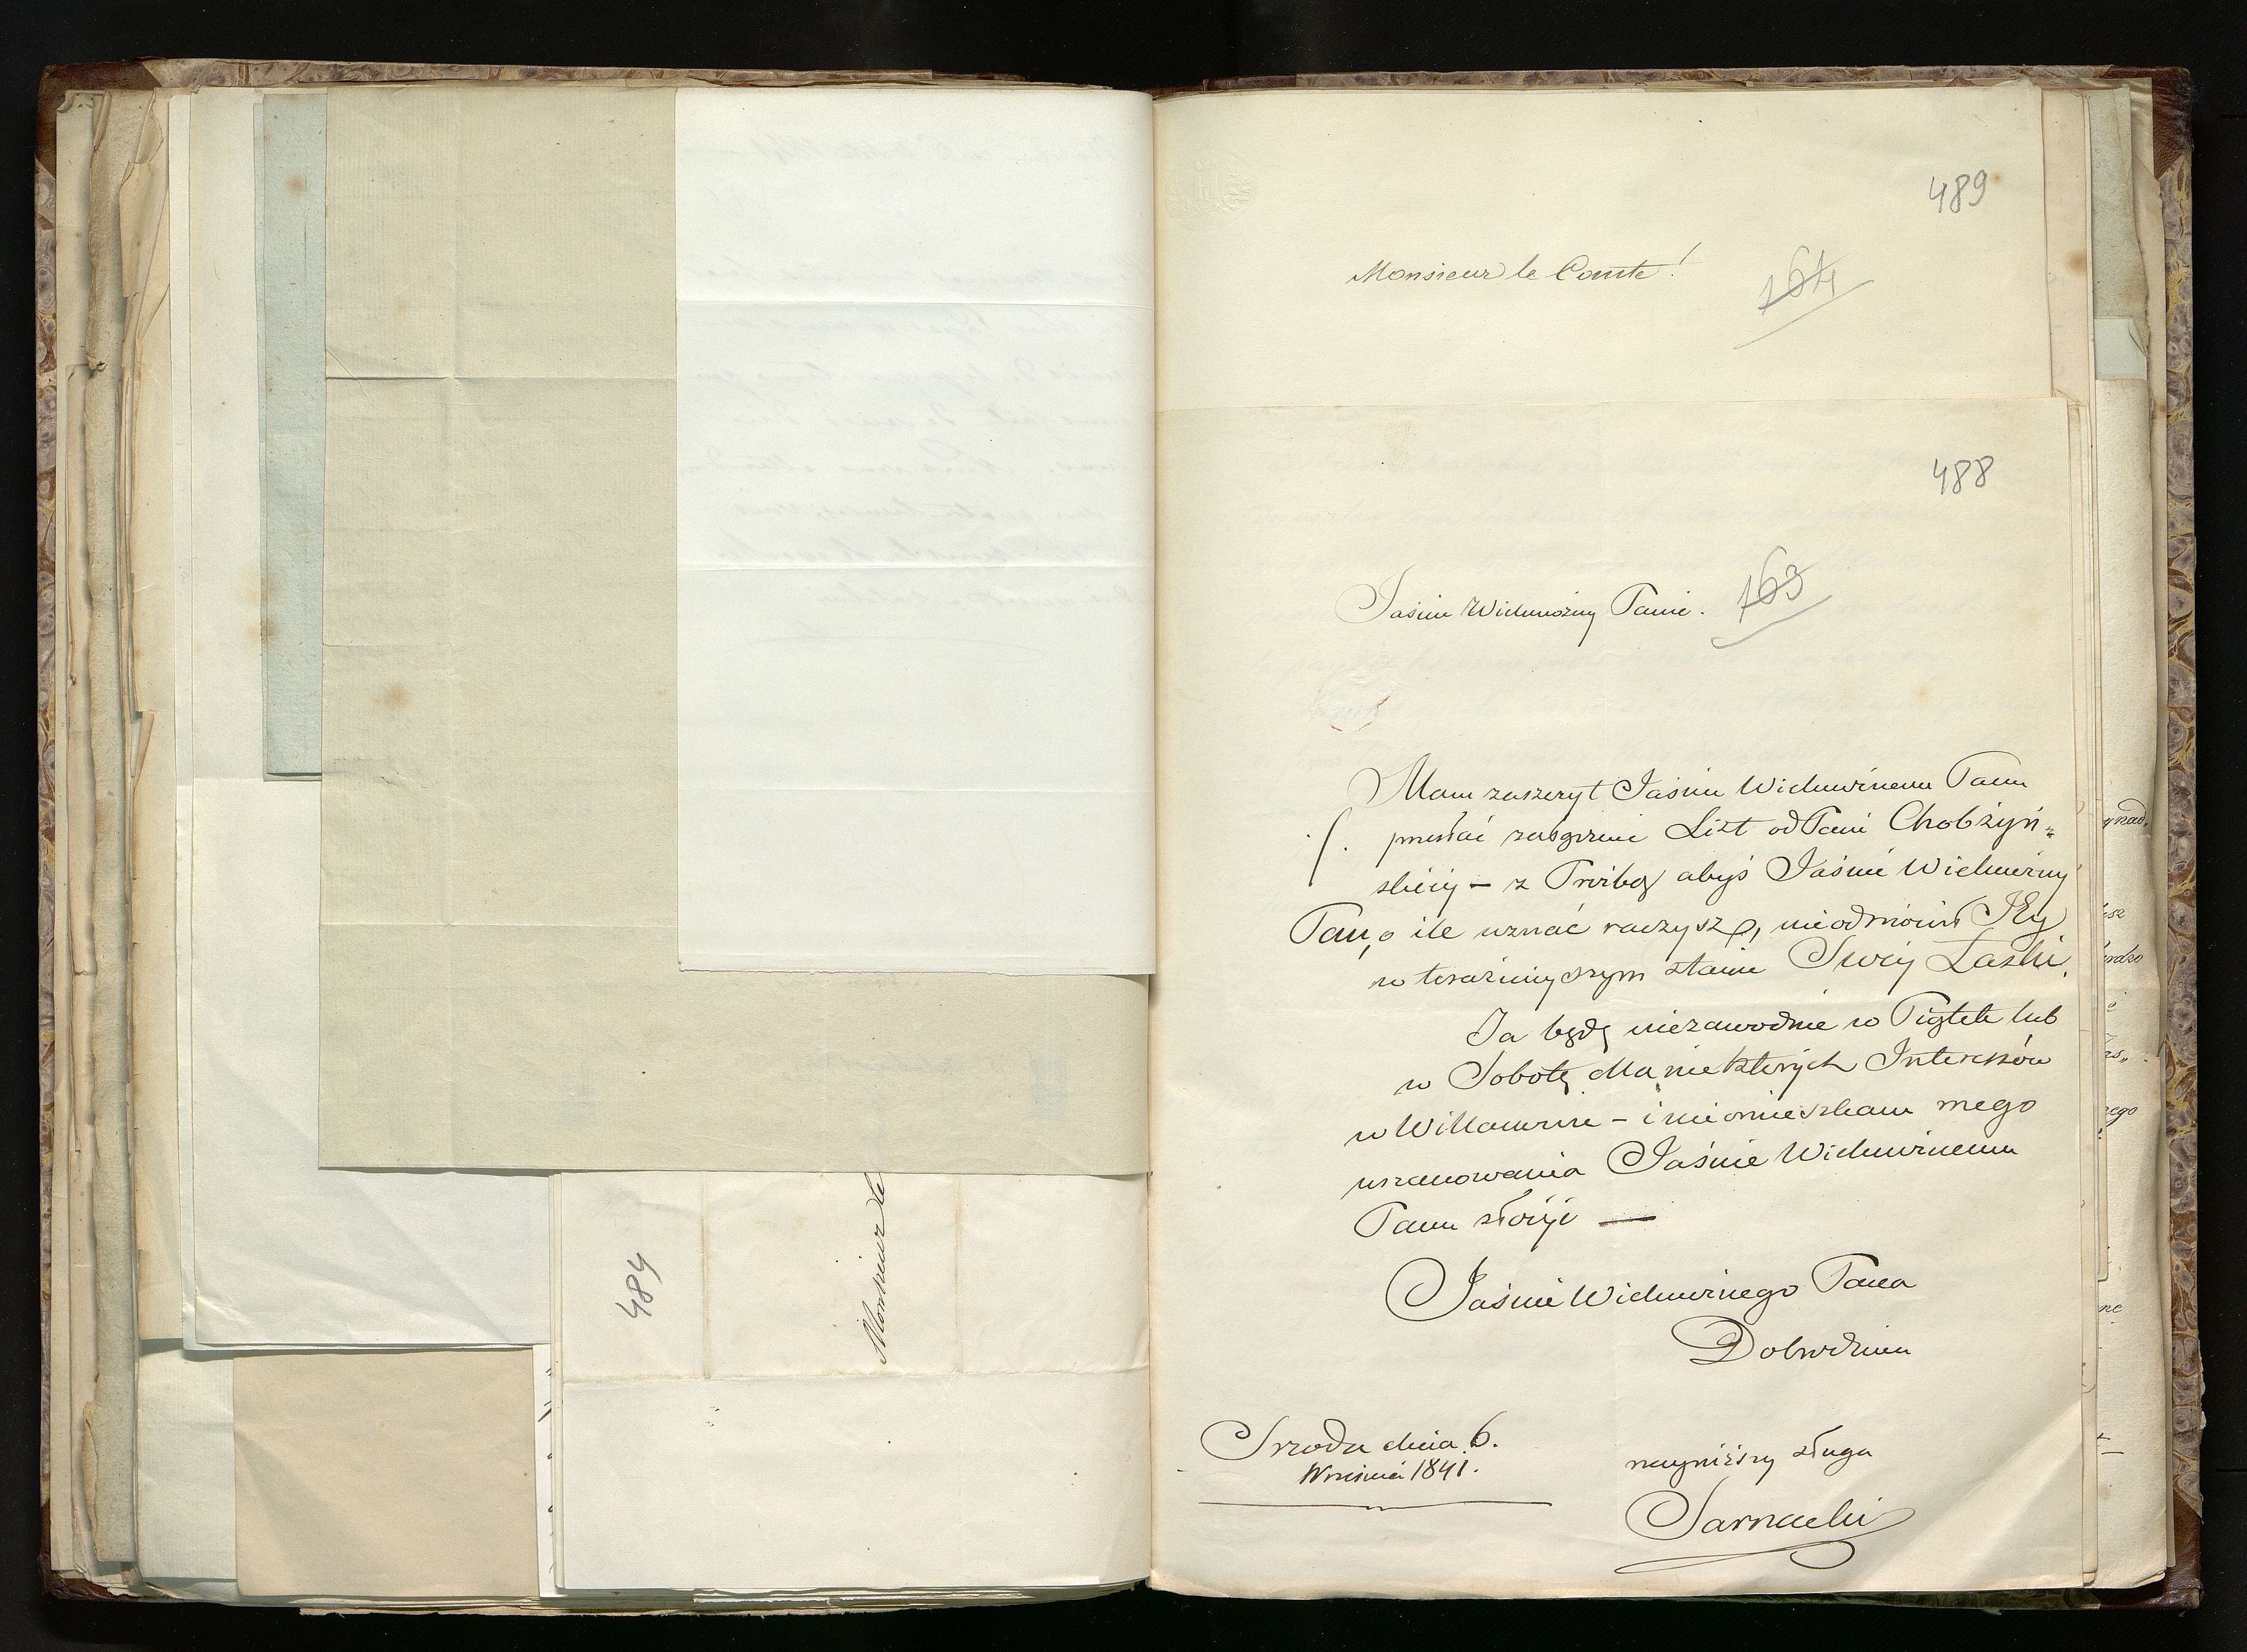 484
Monsieur le
489
Monsieur le Comte!
164
488
Jaśnie Wielmożny Panie.
163
Mam zaszczyt Jaśnie Wielmożnemu Panu
przesłać List od Pani Chobżyń=
skiéy – z Prośbą abyś Jaśnie Wielmożny
Pan, o ile uznać raczysz, nieodmówił Jéy
w teraźnieyszym stanie Swéy Łaski.
Ja będę niezawodnie w Piątek lub
w Sobotę dla niektórych Interessów
w Willanowie – i nieomieszkam mego
uszanowania Jaśnie Wielmożnemu
Panu złożyć —
Jaśnie Wielmożnego Pana
Dobrodzieia
Srzoda dnia 6.
Wrześnią 1841.
nayniższy sługa
Sarnacki